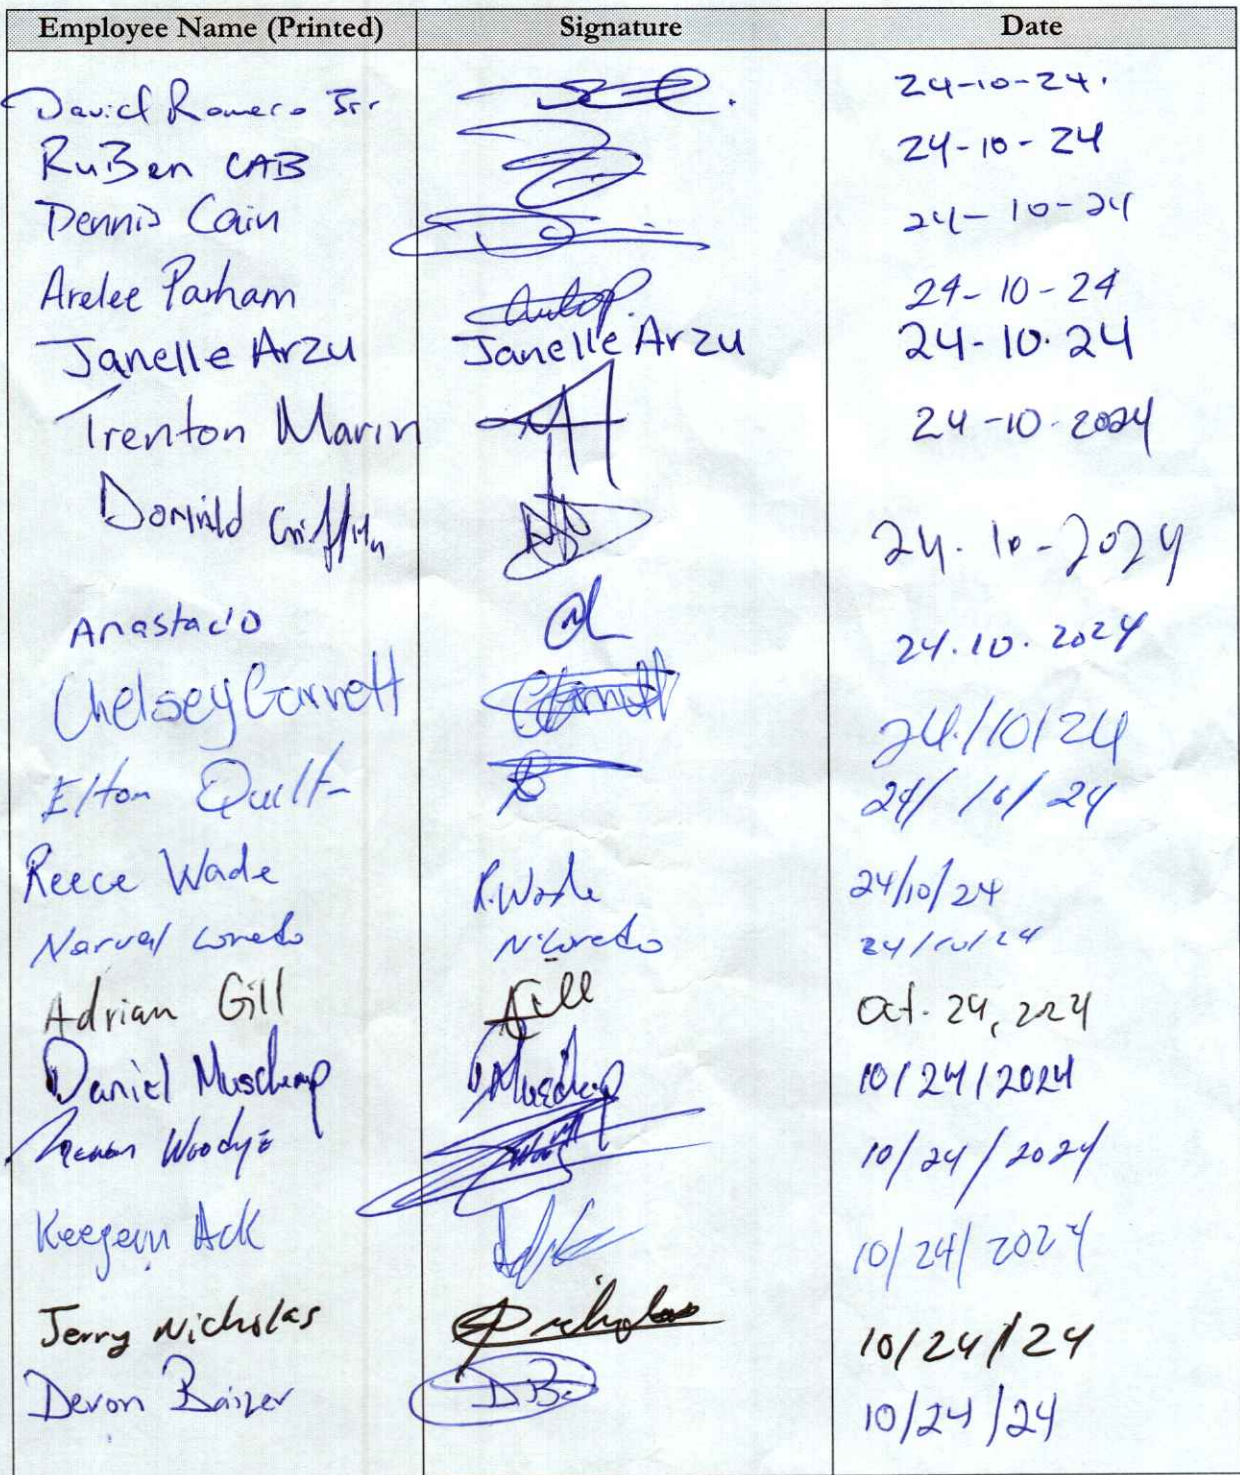 Employee Name (Printed) Signature Date
David Romero Jr. 24-10-24.
RuBen CAB 24-10-24
Dennis Cain 24-10-24
Arelee Parham 24-10-24
Janelle Arzu Janelle Arzu 24-10.24
Trenton Marin 24-10-2024
Griffith 24.10-2024
Anastacio 24.10.2024
Chelsey Garnett 24/10/24
Elton 24/10/24
Reece Wade R.Wade 24/10/24
Narval Loreto N.Loreto 24/10/24
Adrian Gill AGill Oct. 24, 2024
Daniel Muschamp DMuschamp 10/24/2024
10/24/2024
Ack 10/24/2024
Jerry Nicholas 10/24/24
Devon 10/24/24